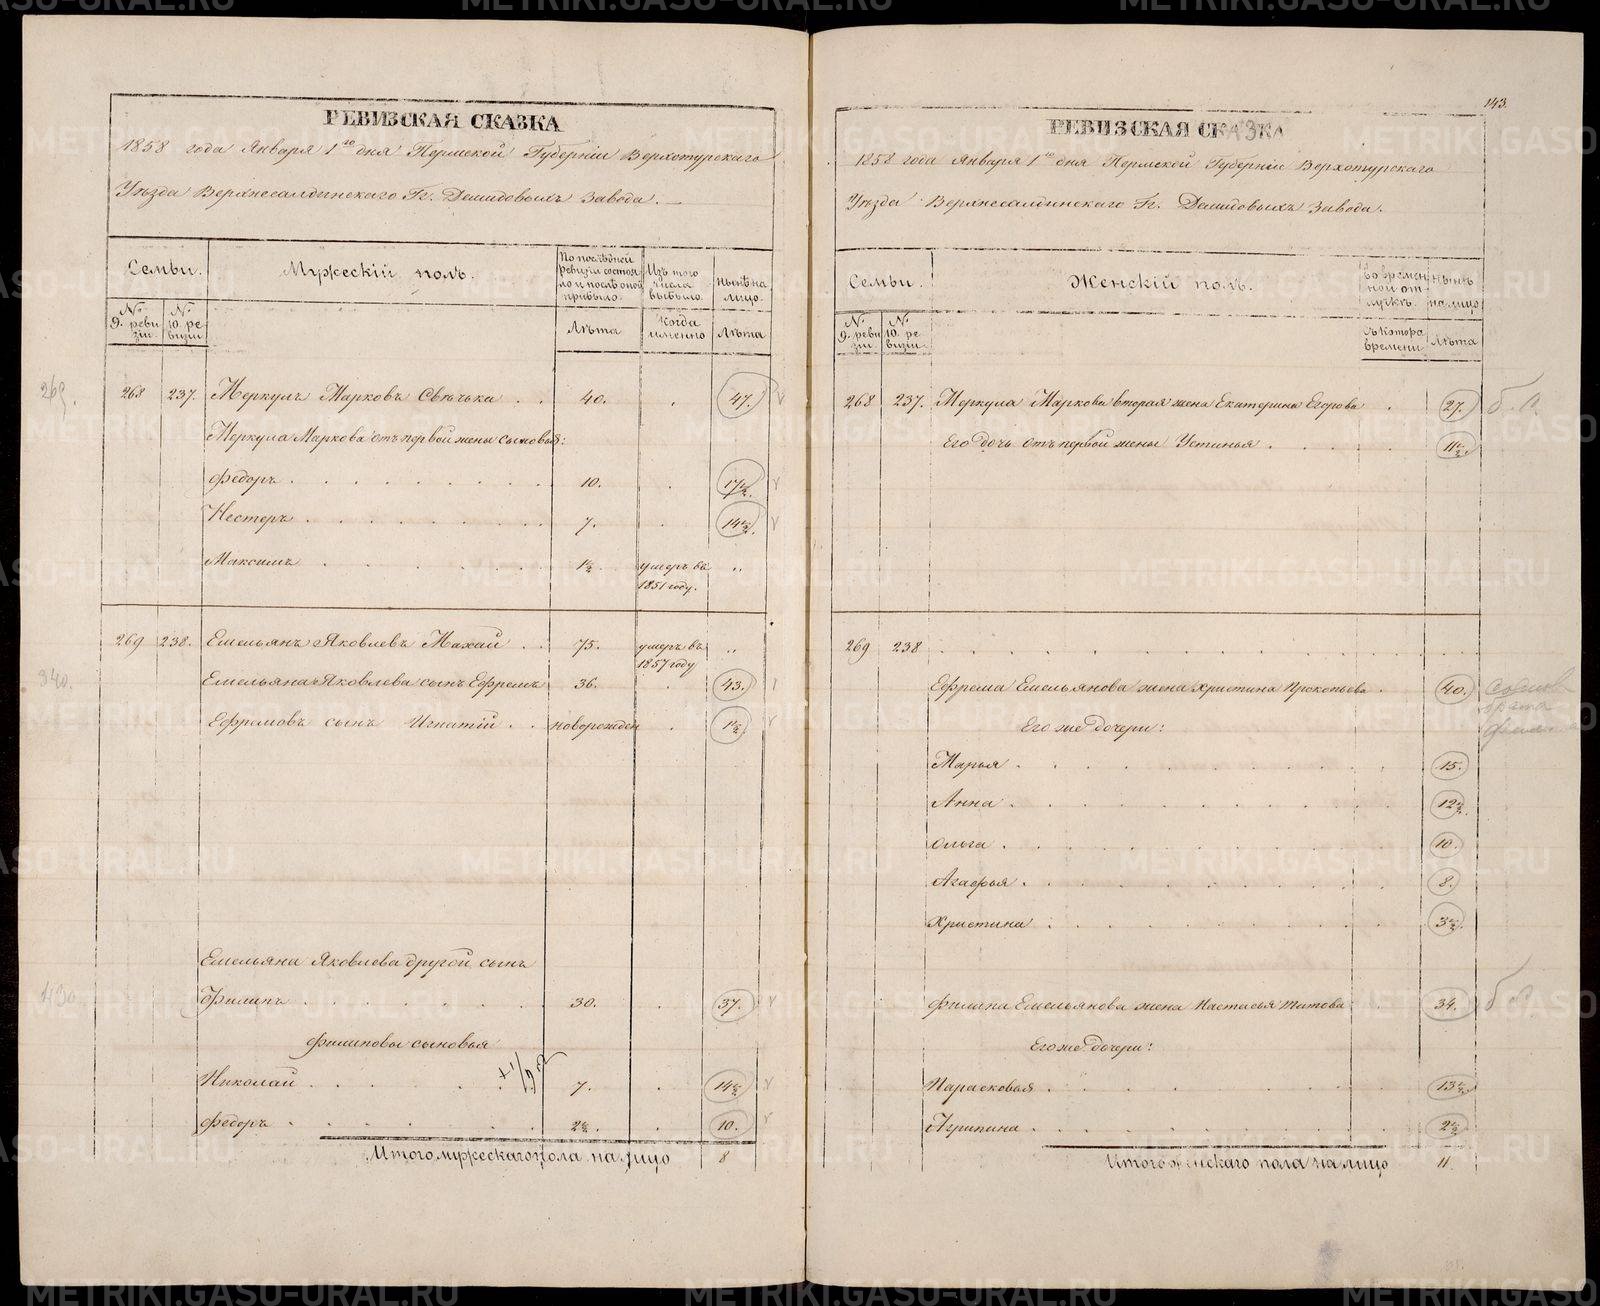 РЕВИЗСКАЯ СКАЗКА
1858 года Января 1го дня Пермской Губерніи Верхотурскаго
Уѣзда Верхнесалдинскаго Гг. Демидовыхъ Завода.
Семьи.
Мужескій полъ.
По послѣдней ревизіи состояло и послѣ оной прибыло.
Изъ того числа выбыло.
Нынѣ на лицо.
№ 9. ревизіи
№ 10. ревизіи
Лѣта
Когда именно
Лѣта
268 237. Меркулъ Марковъ Свѣчька . . 40. . 47.
Меркула Маркова отъ первой жены сыновья:
Федоръ . . . 10. . 17½.
Нестеръ . . . 7. . 14½.
Максимъ . . . 1½. умеръ въ 1851 году. „
269 238. Емельянъ Яковлевъ Махай . . 75. умеръ въ 1857 году „
Емельяна Яковлева сынъ Ефремъ 36. . 43.
Ефремовъ сынъ Игнатій . . новорожден . 1½
Емельяна Яковлева другой сынъ
Филипъ . . . 30. . 37.
Филиповы сыновья
Николай . . . 7. . 14½
Федоръ . . . 2½. . 10.
Итого мужескаго пола на лицо 8
143.
РЕВИЗСКАЯ СКАЗКА
1858 года Января 1го дня Пермской Губерніи Верхотурскаго
Уѣзда Верхнесалдинскаго Гг. Демидовыхъ Завода.
Семьи.
Женскій полъ.
Во временной отлучкѣ.
Нынѣ на лицо
№ 9. ревизіи
№ 10. ревизіи
Съ котора времени
Лѣта
268 237. Меркула Маркова вторая жена Екатерина Егорова . 27.
Его дочь отъ первой жены Устинья . . . 11½.
269 238 . . .
Ефрема Емельянова жена Христина Прокопьева . 40.
Его же дочери:
Марья . . . 15.
Анна . . . 12½.
Ольга . . . 10.
Агафья . . . 8.
Христина . . . 3½.
Филипа Емельянова жена Настасья Титова . 34.
Его же дочери:
Парасковья . . . 13½
Агрипина . . . 2½
Итого женскаго пола на лицо 11.
METRIKI.GASO-URAL.RU